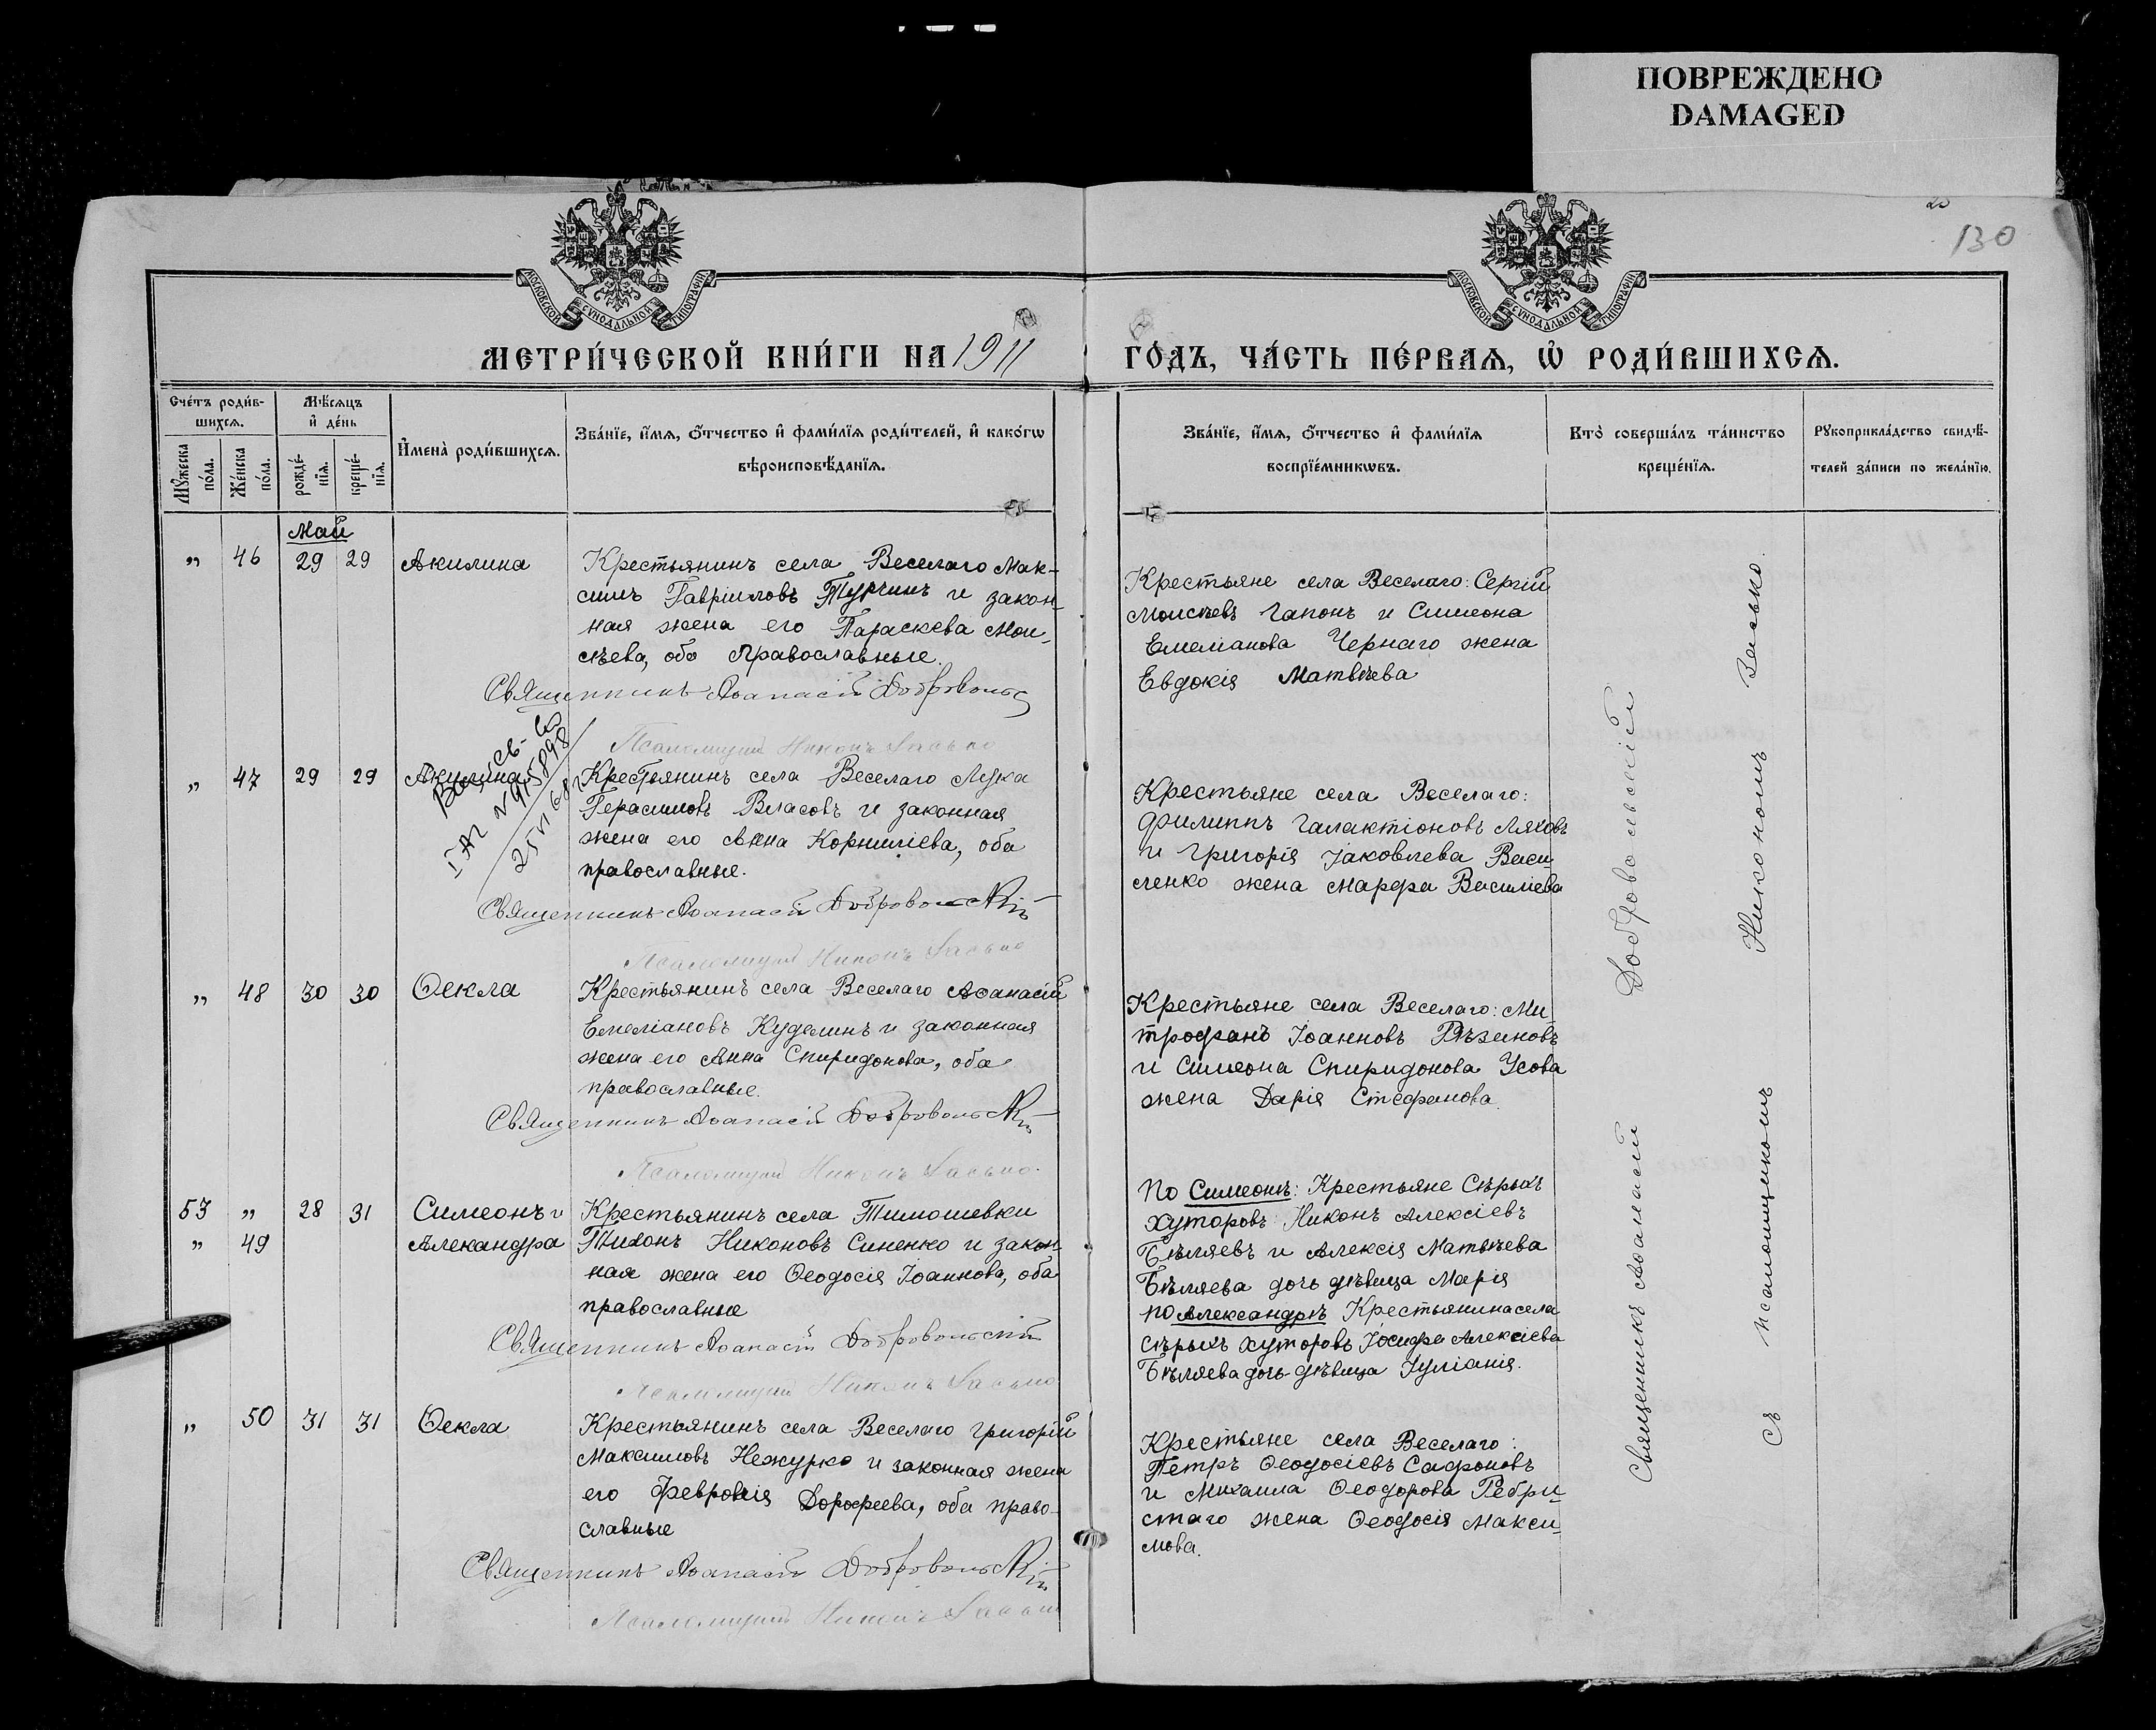 ПОВРЕЖДЕНО
DAMAGED
130
МОСКОВСКОЙ СѴНОДАЛЬНОЙ ТИПОГРАФІИ
МОСКОВСКОЙ СѴНОДАЛЬНОЙ ТИПОГРАФІИ
МЕТРИ́ЧЕСКОЙ КНИ́ГИ НА 1911
ГО́ДЪ, ЧА́СТЬ ПЕ́РВАѦ, Ѡ҆ РОДИ́ВШИХСѦ.
Сче́тъ роди́в-
шихсѧ.
Мꙋ́жеска по́ла.
Же́нска по́ла.
Мѣ́сѧцъ
и҆ де́нь
рожде́-
нїѧ.
креще́-
нїѧ.
И҆мена̀ роди́вшихсѧ.
Зва́нїе, и҆́мѧ, ѻ҆́тчество и҆ фами́лїѧ роди́телей, и҆ како́гѡ
вѣроисповѣ́данїѧ.
Зва́нїе, и҆́мѧ, ѻ҆́тчество и҆ фами́лїѧ
воспрїе́мникѡвъ.
Кто̀ соверша́лъ та́инство
креще́нїѧ.
Рꙋкоприкла́дство свидѣ́-
телей за́писи по жела́нїю.
Май
„ 46 29 29 Акилина
Крестьянинъ села Веселаго Мак-
симъ Гавріиловъ Турчинъ и закон-
ная жена его Параскева Мои-
сѣева, оба православные.
Священникъ Аѳанасій Добровольс
Псаломщикъ Никонъ Васько
Крестьяне села Веселаго: Сергій
Моисѣевъ Гапонъ и Симеона
Емеліанова Чернаго жена
Евдокія Матвѣева
„ 47 29 29 Акилина
Крестьянинъ села Веселаго Лука
Герасимовъ Власовъ и законная
жена его Анна Корниліева, оба
православные.
Священникъ Аѳанасій Добровольскій
Псаломщикъ Никонъ Васько
Крестьяне села Веселаго:
Филиппъ Галактіоновъ Ляховъ
и Григорія Іаковлева Васи
ленко жена Марѳа Василіева
„ 48 30 30 Ѳекла
Крестьянинъ села Веселаго Аѳанасій
Емеліановъ Куделинъ и законная
жена его Анна Спиридонова, оба
православные.
Священникъ Аѳанасій Добровольскій
Псаломщикъ Никонъ Васько.
Крестьяне села Веселаго: Ми
трофанъ Іоанновъ Рѣзановъ
и Симеона Спиридонова Усова
жена Дарія Стефанова.
53 „ 28 31 Симеонъ и
„ 49 Александра
Крестьянинъ села Тимошевки
Тихонъ Никоновъ Синенко и закон-
ная жена его Ѳеодосія Іоаннова, оба
православные
Священникъ Аѳанасій Добровольскій
Псаломщикъ Никонъ Васько
По Симеонѣ: Крестьяне Сѣрыхъ
хуторовъ: Никонъ Алексіевъ
Бѣляевъ и Алексія Матвѣева
Бѣляева дочь дѣвица Марія
по Александрѣ Крестьянина села
Сѣрыхъ хуторовъ Іосифа Алексіева
Бѣляева дочь дѣвица Іуліанія.
„ 50 31 31 Ѳекла
Крестьянинъ села Веселаго Григорій
Максимовъ Нежурко и законная жена
его Февронія Дороѳеева, оба право-
славные
Священникъ Аѳанасій Добровольскій
Псаломщикъ Никонъ Васько
Крестьяне села Веселаго:
Петръ Ѳеодосіевъ Сафоновъ
и Михаила Ѳеодорова Ребри-
стаго жена Ѳеодосія Макси-
мова.
Священникъ Аѳанасій Добровольскій
съ псаломщикомъ Никономъ Васько.